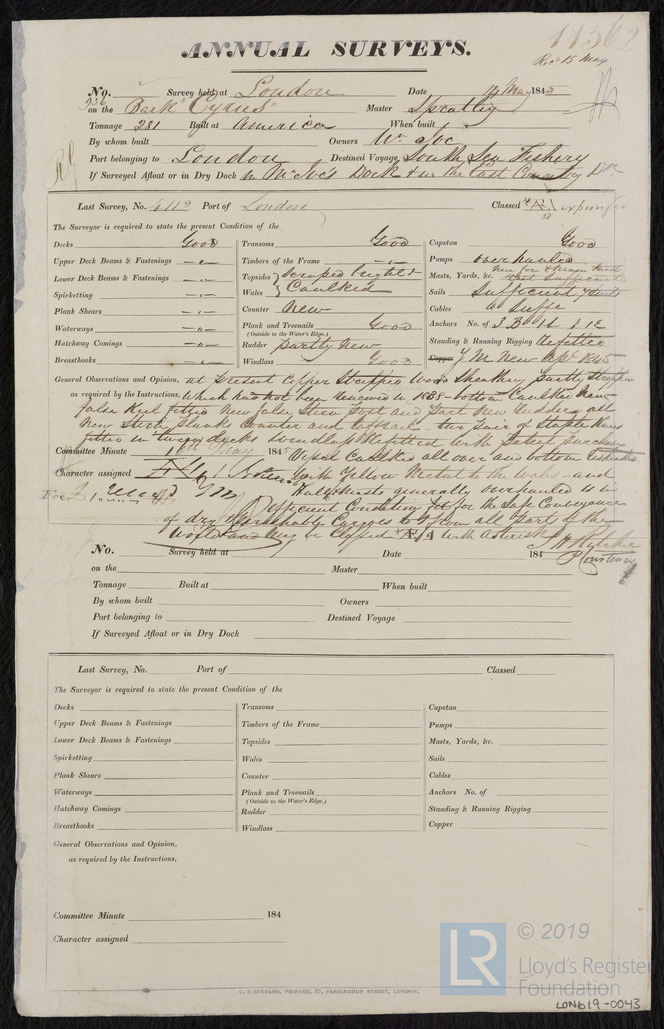 11562
Recd 15 May
ANNUAL SURVEYS.
No. 936 Survey held at London Date 14 May 1845
on the Bark "Cyrus" Master Spratley
Tonnage 281 Built at America When built
By whom built Owners Wm Joc
Port belonging to London Destined Voyage South Sea Fishery
If Surveyed Afloat or in Dry Dock in Mr Joc's Dock & in the East Country Do
Last Survey, No. 4112 Port of London Classed Æ1 38 expunged
The Surveyor is required to state the present Condition of the
Decks Good Transoms Good Capstan Good
Upper Deck Beams & Fastenings -"- Timbers of the Frame -"- Pumps overhauled
Lower Deck Beams & Fastenings -"- Topsides scraped bright & Masts, Yards, &c.
Spirketting -"- Wales Caulked Sails Sufficient
Plank Shears -"- Counter New Cables
Waterways -"- Plank and Treenails Good Anchors No. of 3 B 1 S 1 K
(Outside to the Water's Edge.)
Hatchway Comings -"- Rudder partly new Standing & Running Rigging refitted
Breasthooks -"- Windlass Good Copper Y.M. New Apl 1845
General Observations and Opinion, at present Copper Stripped Wood Sheathing partly stripped
as required by the Instructions, which had not been renewed in 1838 - bottom Caulked New
false Keel fitted New false Stern Post and part New Rudder all
New Stern Planks Counter and Taffrail - two pair of Staple Knees
fitted in tween decks windlass refitted with Patent
Committee Minute 16th May 1845 Vessel Caulked all over and bottom
Character assigned with Yellow Metal to the Wales - and
Masts generally overhauled is in
efficient Condition for the Safe Conveyance
of dry & perishable Cargoes to & from all parts of the
World and may be Classed Æ1 with Asterisk
No. Survey held at Date 184
on the Master
Tonnage Built at When built
By whom built Owners
Port belonging to Destined Voyage
If Surveyed Afloat or in Dry Dock
Last Survey, No. Port of Classed
The Surveyor is required to state the present Condition of the
Decks Transoms Capstan
Upper Deck Beams & Fastenings Timbers of the Frame Pumps
Lower Deck Beams & Fastenings Topsides Masts, Yards, &c.
Spirketting Wales Sails
Plank Shears Counter Cables
Waterways Plank and Treenails Anchors No. of
(Outside to the Water's Edge.)
Hatchway Comings Rudder Standing & Running Rigging
Breasthooks Windlass Copper
General Observations and Opinion,
as required by the Instructions,
Committee Minute 184
Character assigned
LR © 2019
Lloyd's Register
Foundation
LON619-0043